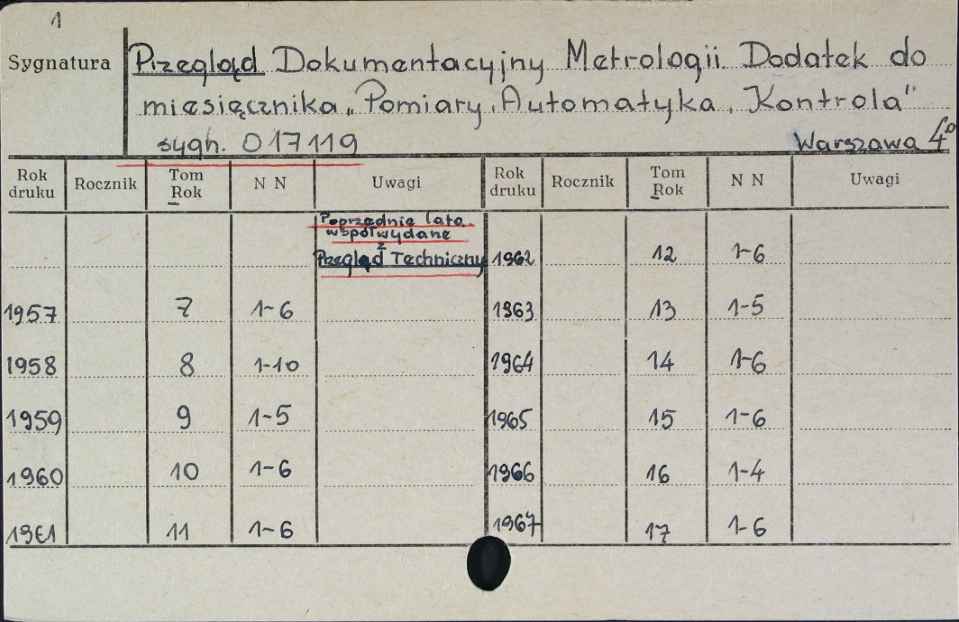 1
Sygnatura
Przegląd Dokumentacyjny Metrologii Dodatek do
miesięcznika „Pomiary, Automatyka, Kontrola"
sygn. 017119 Warszawa 4°
Rok druku Rocznik Tom Rok N N Uwagi Rok druku Rocznik Tom Rok N N Uwagi
Poprzednie lata
współwydane
z
Przegląd Techniczny 1962 12 1-6
1957 7 1-6 1963 13 1-5
1958 8 1-10 1964 14 1-6
1959 9 1-5 1965 15 1-6
1960 10 1-6 1966 16 1-4
1961 11 1-6 1967 17 1-6